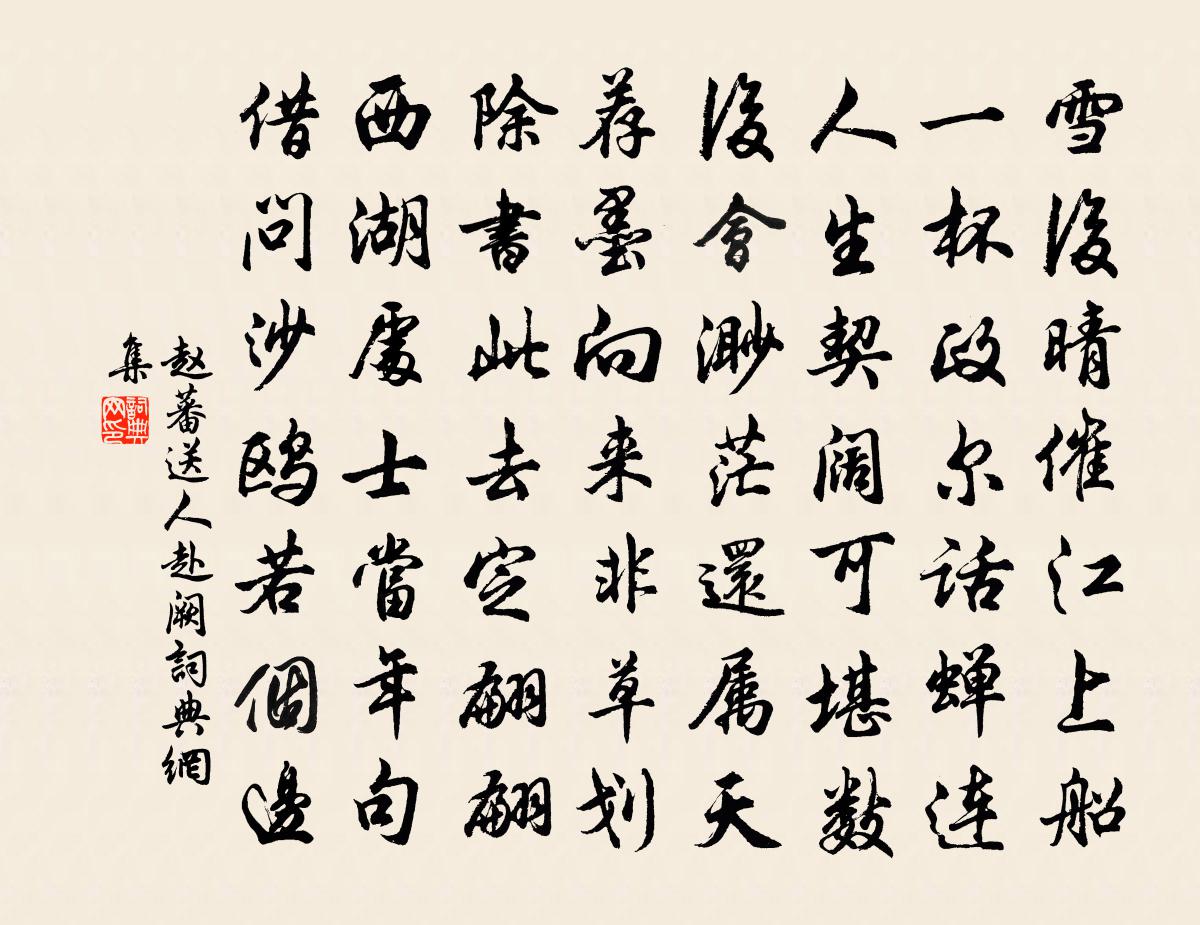 雪後晴催江上船
一杯政尔話蝉连
人生契阔可堪数
後會渺茫還属天
荐墨向来非草划
除書此去定翩翩
西湖處士當年句
借问沙鸥若個邊
赵蕃送人赴阙詞典網
集
詞典
网印